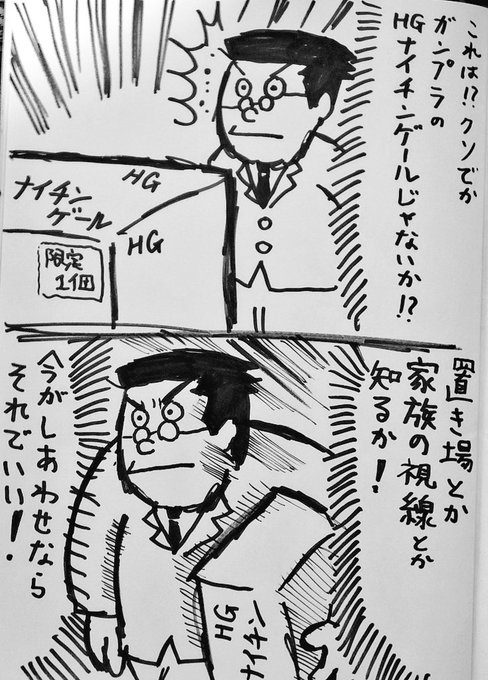 これは!?クソでか
ガンプラの
HGナイチンゲールじゃないか!?
HG
ナイチン
ゲール
HG
限定
1個
置き場とか
家族の視線とか
知るか!
今がしあわせなら
それでいい!
HG
ナイチン